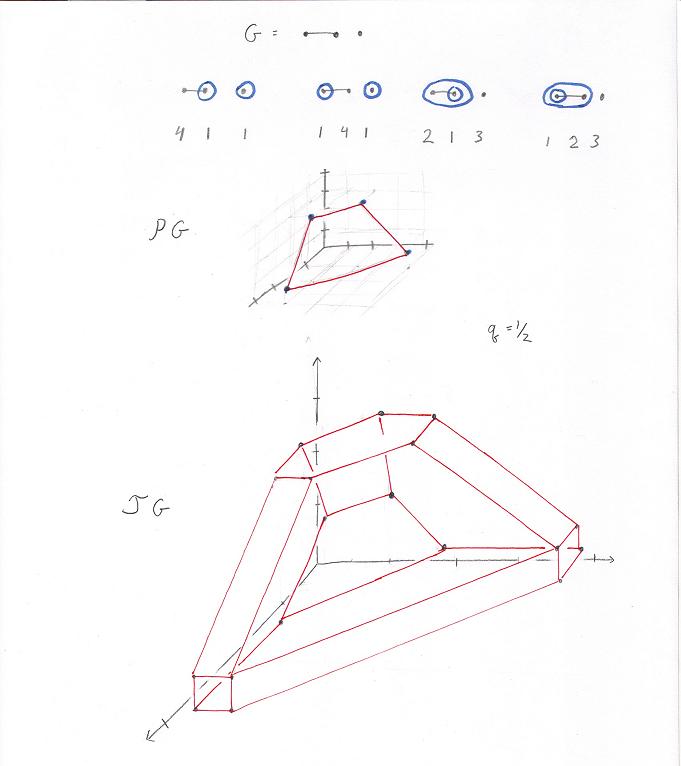 G =
4 1 1 1 4 1 2 1 3 1 2 3
PG
q = 1/2
JG